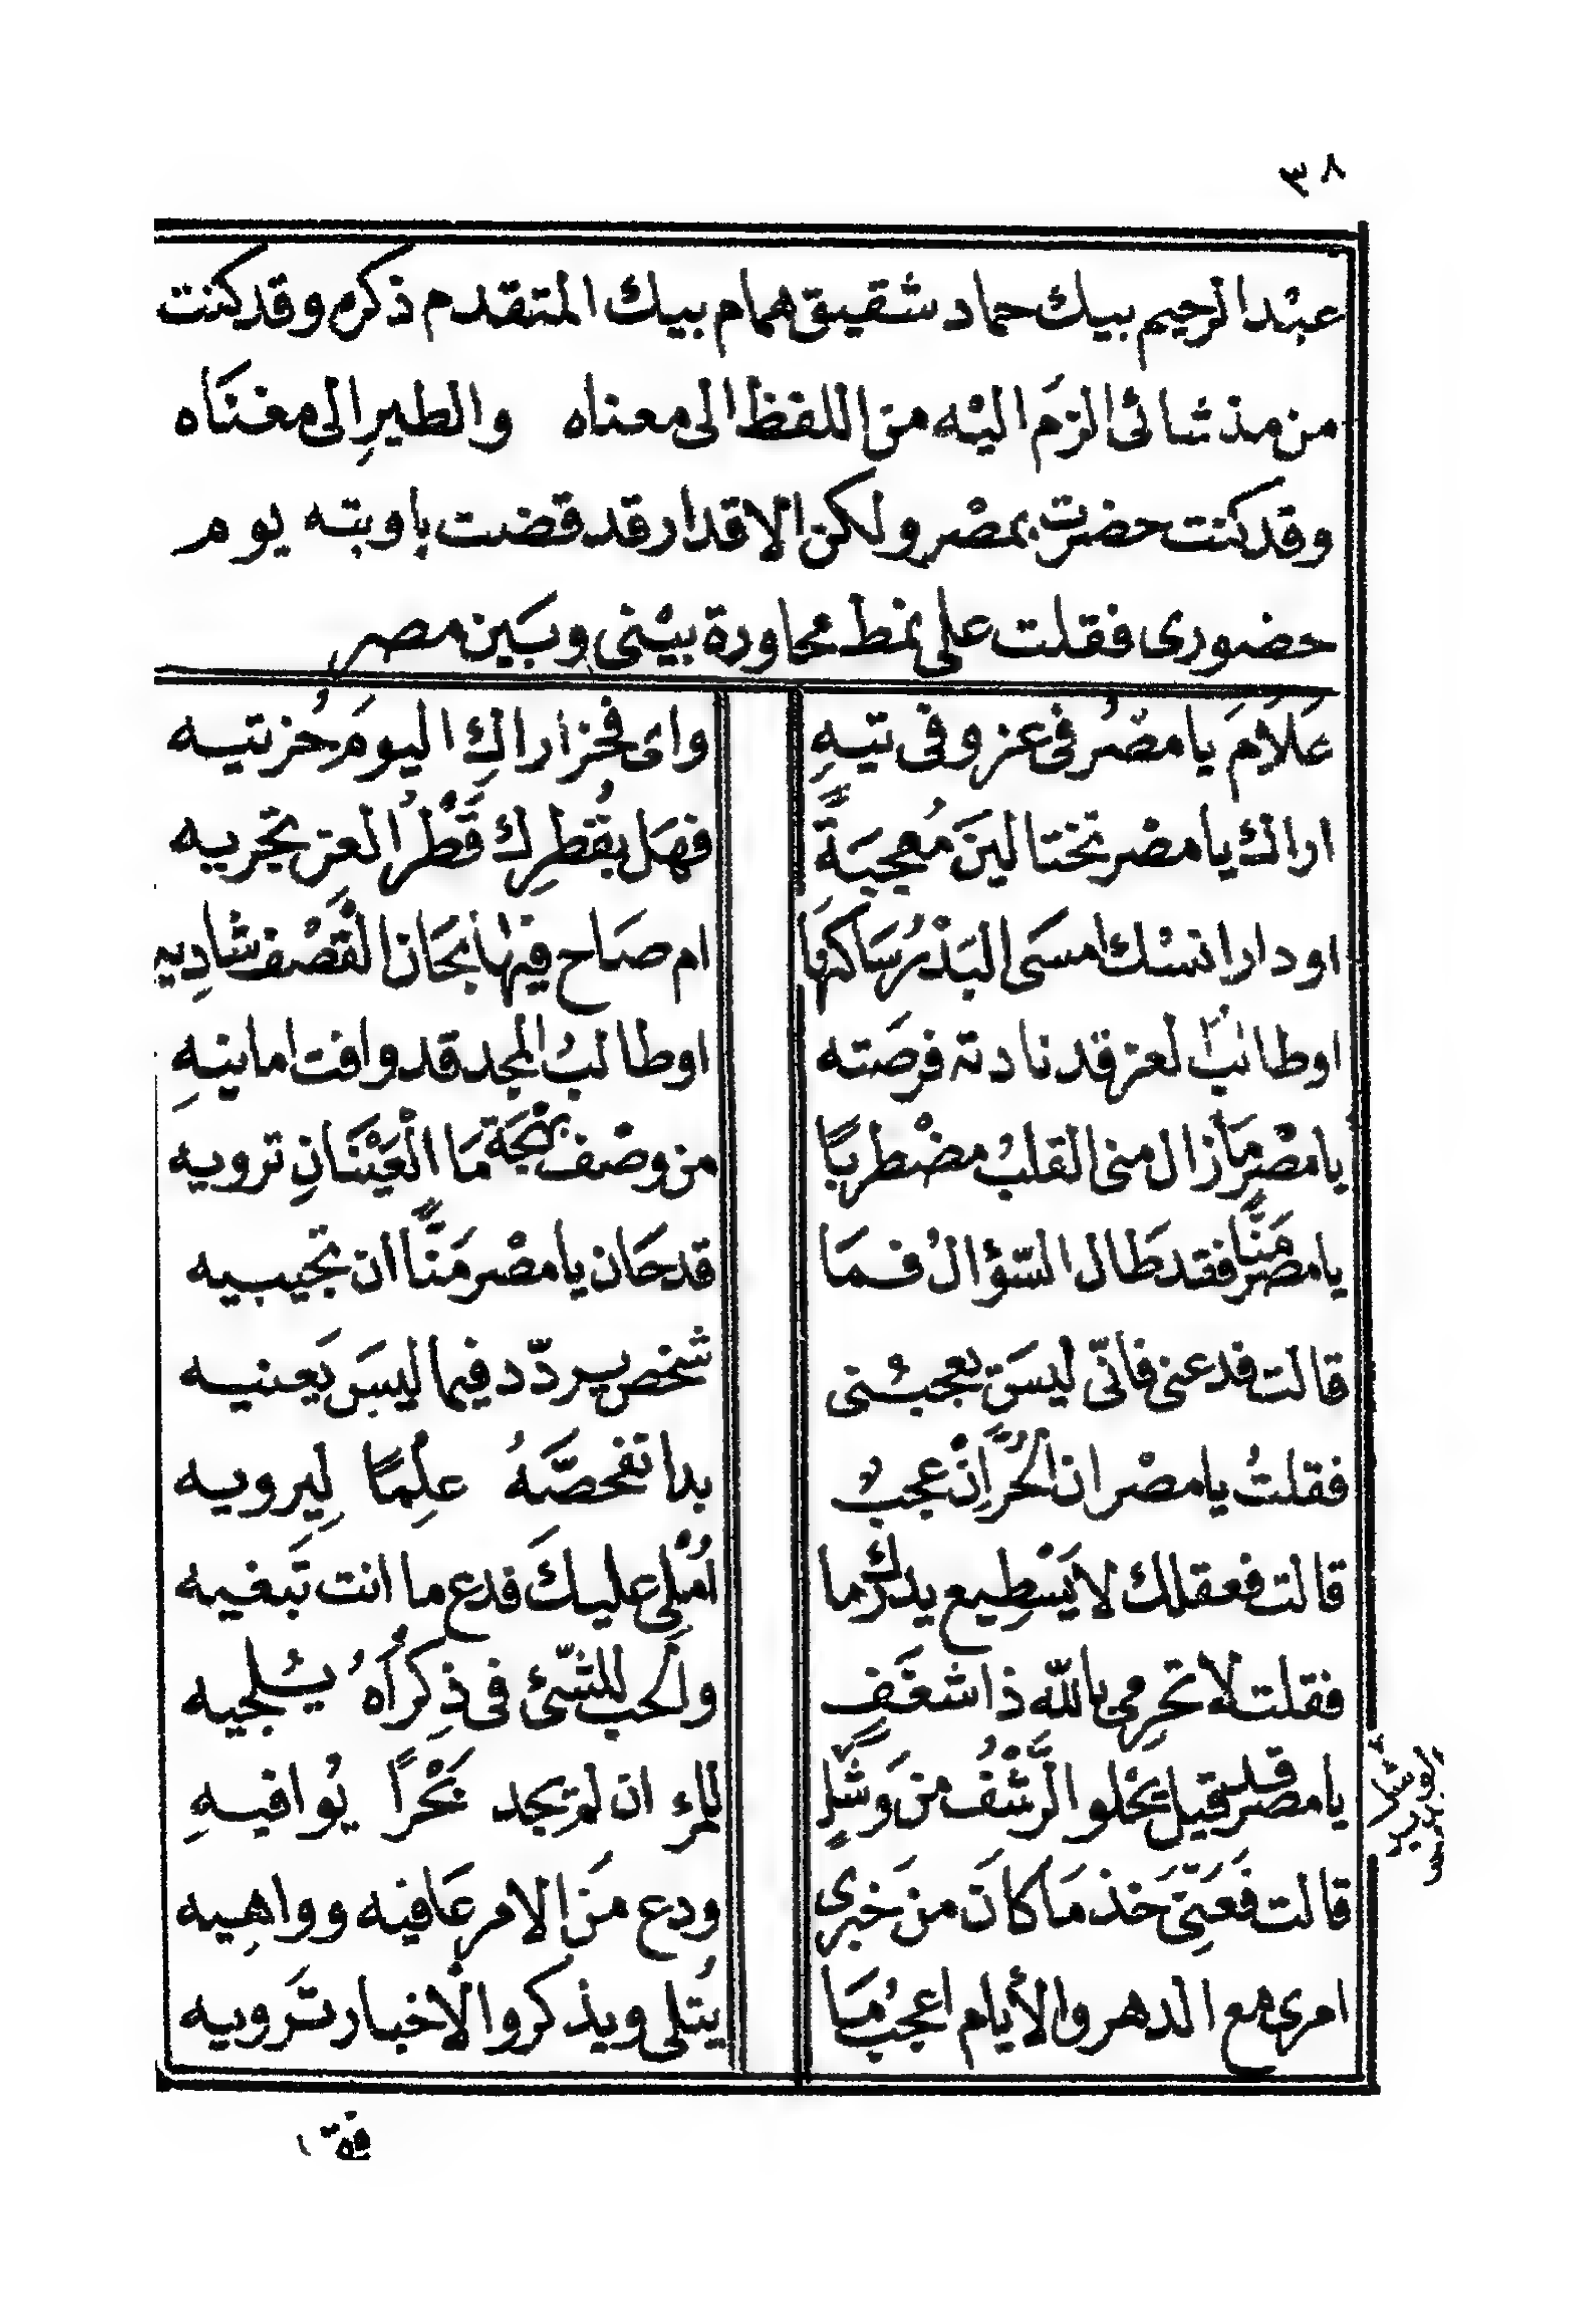 ٣٨
عبْدالرحيم بيك حماد شقيق همام بيك المتقدم ذكره وقدكنت
من مذ شائى الزمَ اليْه من اللفظ الى معناه والطيرِ الى مغنَاه
وقدكنت حضرت بمصْر ولكن الاقدار قد قضت باوبته يوم
حضورى فقلت على نمط محاورة بيْنى وبَين مصر
عَلَامَ يا مصْرُ فى عز وفى تيهِ واى فخز اراكِ اليومَ حُزتيه
اراك يا مصْر تختالينَ مُعجبَةً فهَل بقُطرِك قَطْرُ العز تجريه
او دارانسْك امسَى البَدْرُ سَاكنهَا ام صَاح فيهَا بحَان القَصْف شادِيه
او طالبٌ لعز قد نادته فرصَته او طالبُ المجد قد وافت امانيهِ
يا مصْر مَا زال منى القلبُ مضْطربًا من وصْف بهْجَة مَا الْعَيْنَانِ ترويه
يا مصر مَنًّا فقد طَال السّؤالُ فمَا قد حَان يا مصْر مَنًّا ان تجيبيه
قالت فدعنى فانّى ليسَ يعجبْنى شخص يردّد فيما ليسَ يَعنيه
فقلتُ يا مصْر ان الحُرَّ اِنْ عجبٌ بدا تفحصَّهُ علِمًا لِيرويه
قالت فعقلك لا يَسْطِيع يدرك ما اُمْلِى عليكَ فدع ما انت تَبغيه
فقلت لا تحرِمى بالله ذا شغَفٍ والحب للشّئ فى ذِكرْاهُ يُسلجيه
يا مصر قد قيل يَحْلو الرَّشْفُ من وَشَلٍ للمرء ان لم يجد بَحْرًا يُوافيهِ
قالت فَعَنّى خَذ مَا كانَ من خبَرى ودع مَن الامر عَافيه وواهِيه
امرى مع الدهر والأيام اعجبُ مَا يُتلى ويذكر والاخبار تَرويه